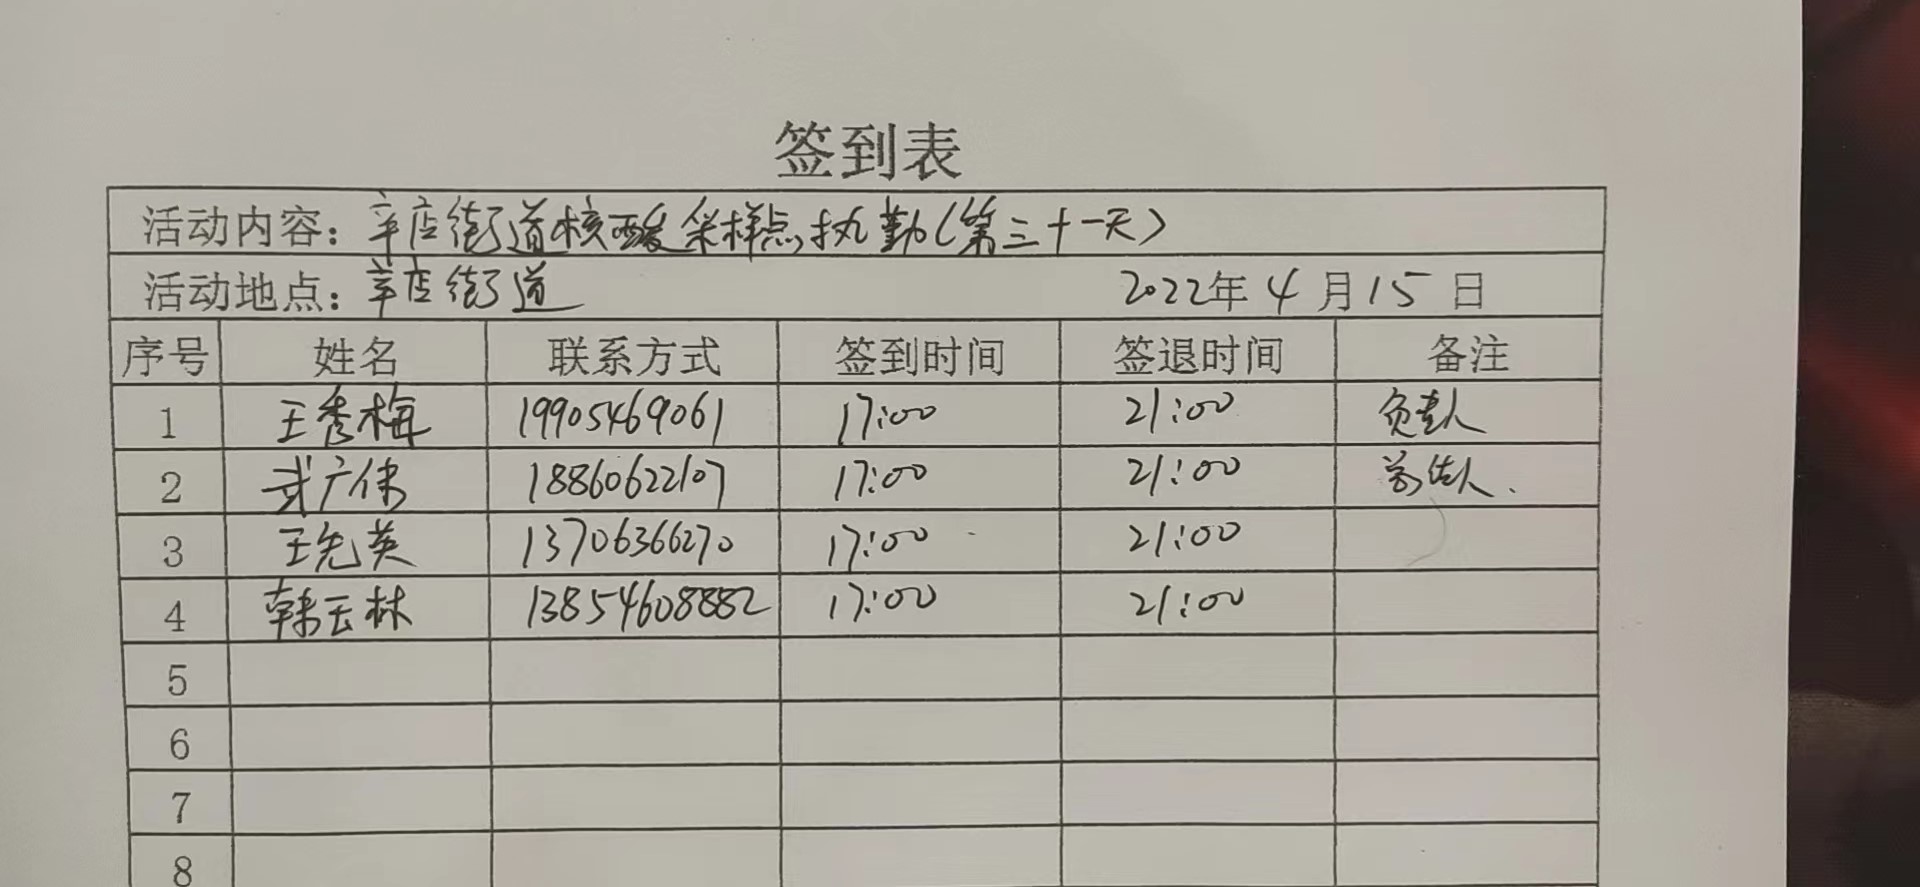 签到表
活动内容：辛店街道核酸采样点执勤（第三十一天）
活动地点：辛店街道 2022年4月15日
序号 姓名 联系方式 签到时间 签退时间 备注
1 王秀梅 19905469061 17:00 21:00 负责人
2 武广伟 18860622107 17:00 21:00
3 王先英 13706366270 17:00 21:00
4 韩云林 13854608882 17:00 21:00
5
6
7
8